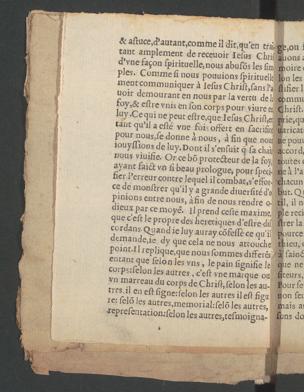 & astuce, d'autant, comme il dit, qu'en trai-
tant amplement de receuoir Iesus Christ
d'vne façon spirituelle, nous abusós les sim
ples. Comme si nous pouuions spirituelle
ment communiquer à Iesus Christ, sans l'a
uoir demourant en nous par la vertu de la
foy, & estre vnis en son corps pour viure en
luy. Ce qui ne peut estre, que Iesus Christ, en
tant qu'il a esté vne fois offert en sacrifice
pour nous, se donne à nous, à fin que nous
iouyssions de luy. Dont il s'ensuit q̃ sa chair
nous viuifie. Or ce bõ protecteur de la foy,
ayant faict vn si beau prologue, pour
fier l'erreur contre lequel il combat, s'effor
ce de monstrer qu'il y a grande diuersité d'o
pinions entre nous, à fin de nous rendre o-
dieux par ce moyẽ. Il prend ceste maxime,
que c'est le propre des heretiques d'estre dis
cordans Quand ie luy auray cõfessé ce qu'il
demande, ie dy que cela ne nous attouche
point. Il replique, que nous sommes differẽs
entant que selon les vns, le pain signifie le
corps: selon les autres, c'est vne marque ou
vn marreau du corps de Christ, selon les au-
tres. il en est signe: selon les autres il est figu
re: selõ les autres, memorial: selõ les autres,
representation: selon les autres, tesmoigna-